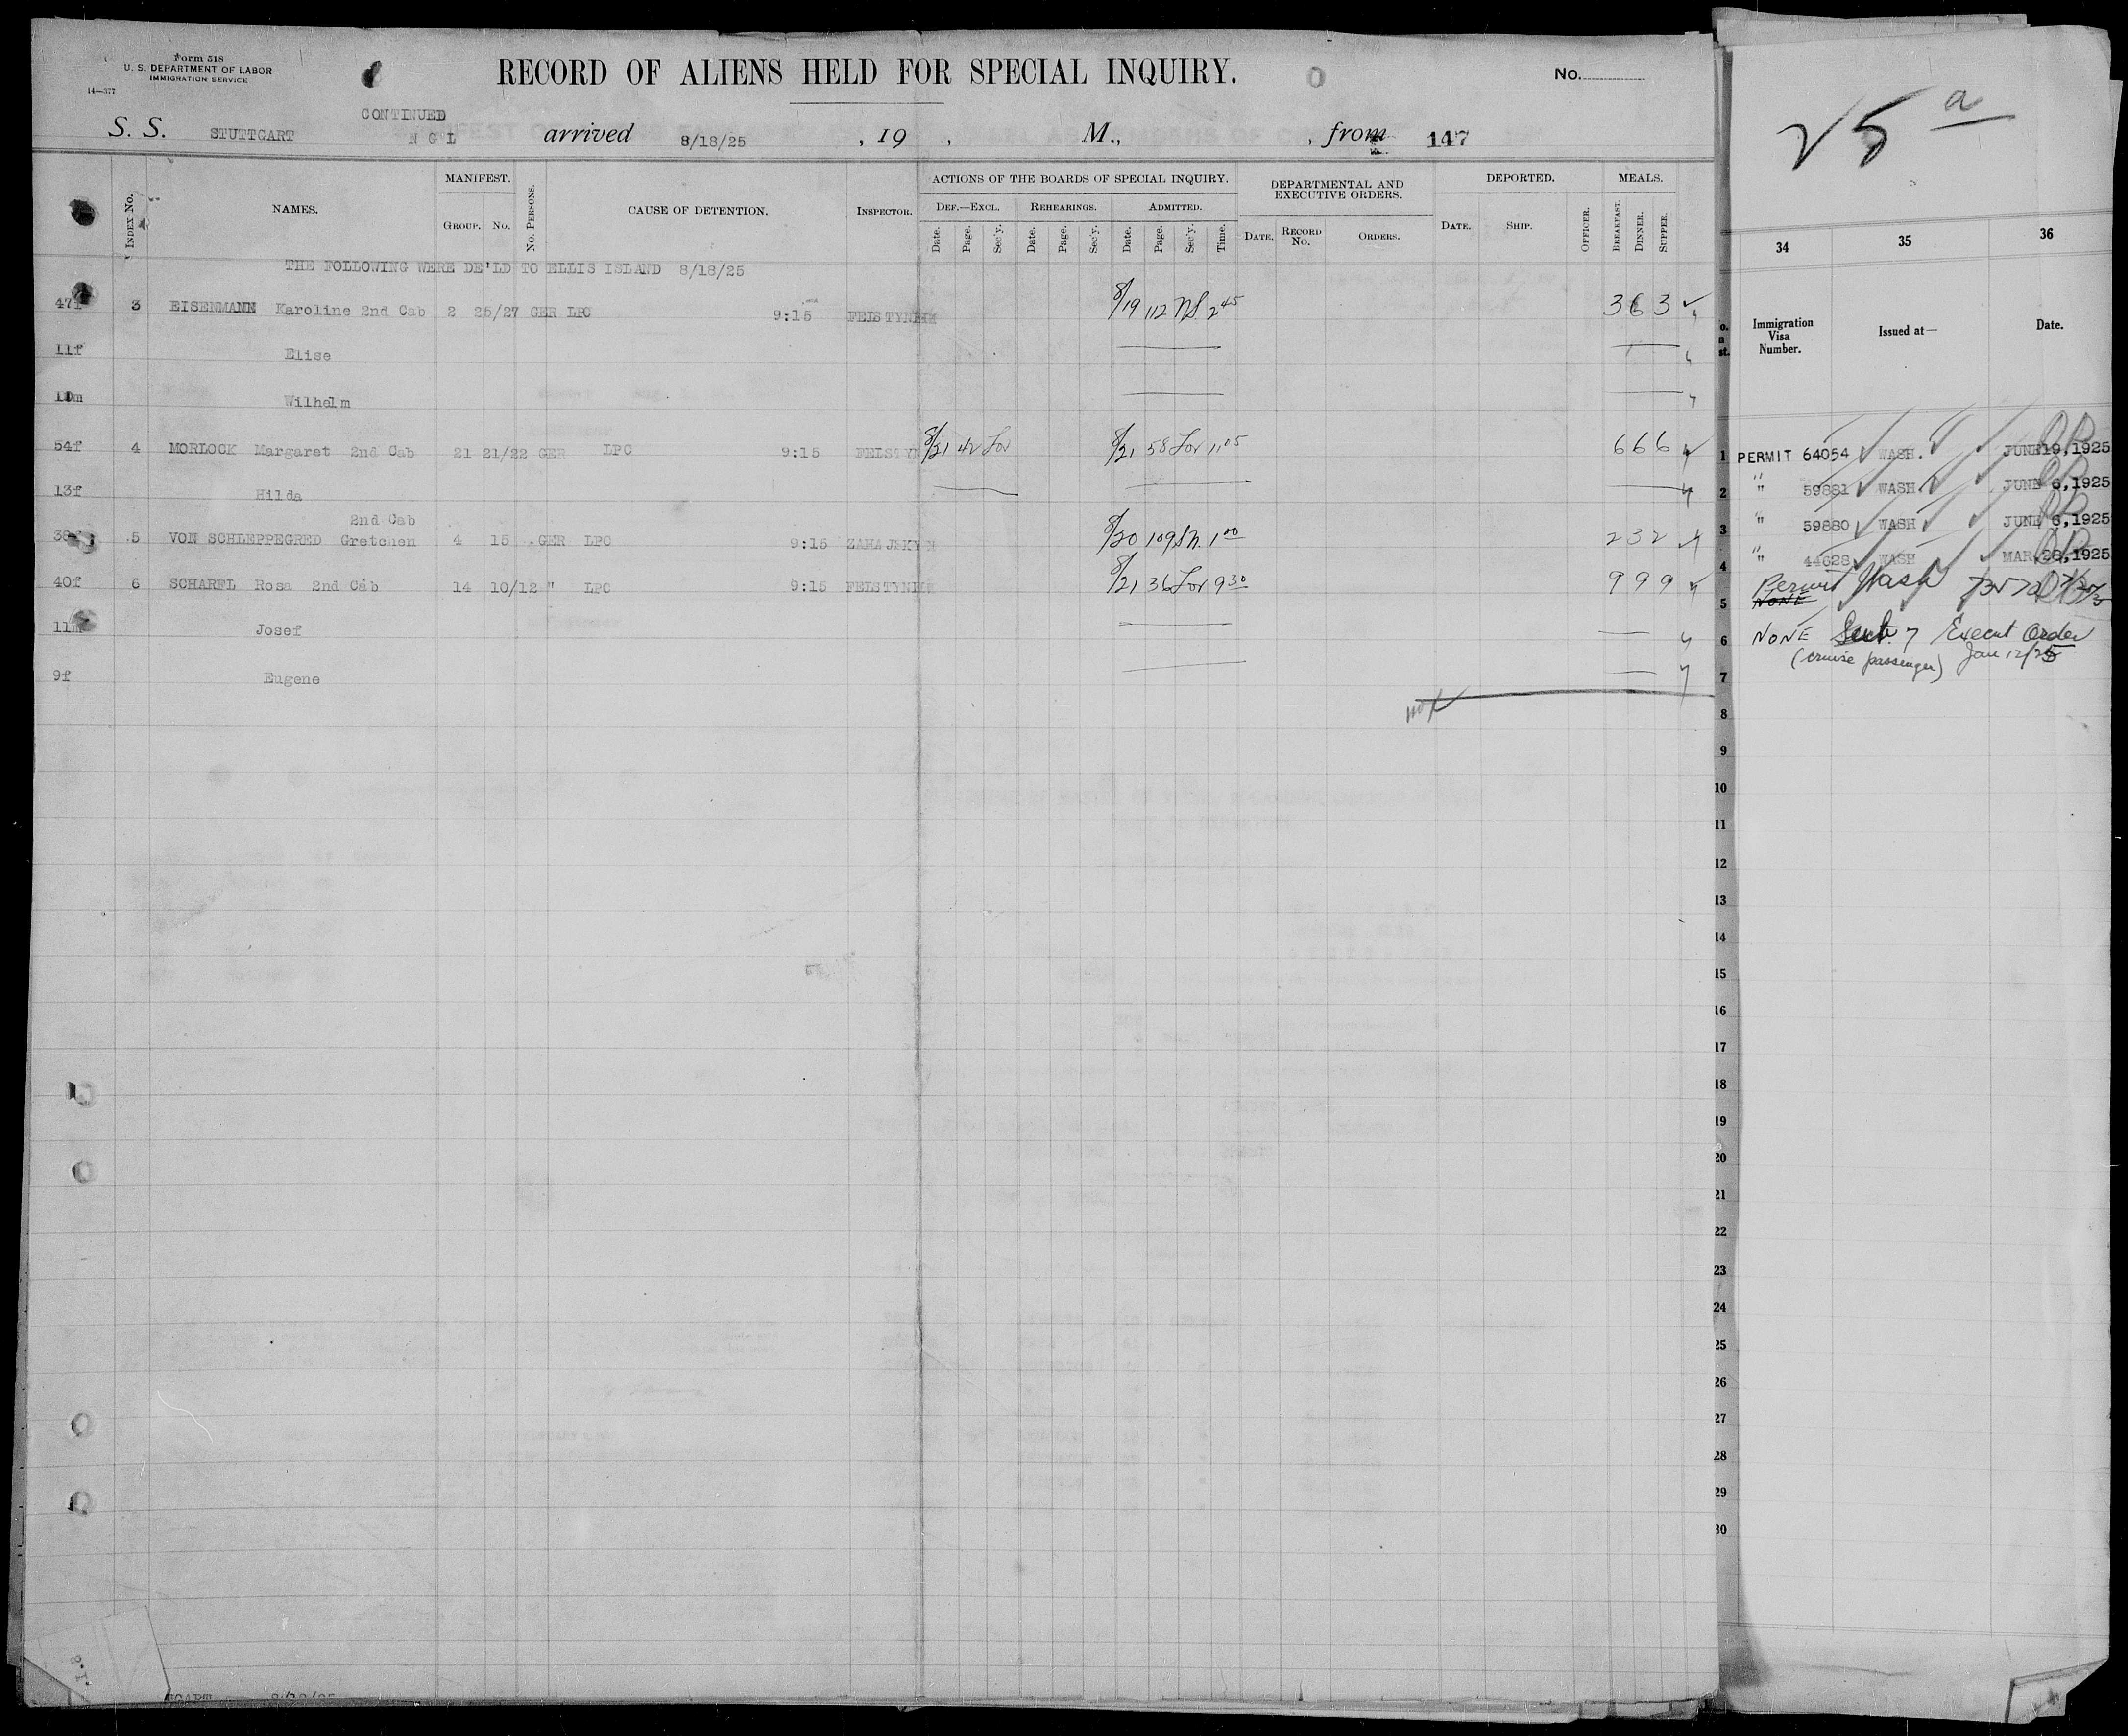 Form 518
U. S. DEPARTMENT OF LABOR
IMMIGRATION SERVICE
14—377
RECORD OF ALIENS HELD FOR SPECIAL INQUIRY.
No.
CONTINUED
S. S. STUTTGART N G L arrived 8/18/25 , 19 , M., , from 147
INDEX No.
NAMES.
MANIFEST.
GROUP. No.
No. PERSONS.
CAUSE OF DETENTION.
INSPECTOR.
ACTIONS OF THE BOARDS OF SPECIAL INQUIRY.
DEF.—EXCL. REHEARINGS. ADMITTED.
Date. Page. Sec'y. Date. Page. Sec'y. Date. Page. Sec'y. Time.
DEPARTMENTAL AND
EXECUTIVE ORDERS.
DATE. RECORD No. ORDERS.
DEPORTED.
DATE. SHIP. OFFICER.
MEALS.
BREAKFAST. DINNER. SUPPER.
THE FOLLOWING WERE DE'LD TO ELLIS ISLAND 8/18/25
47f 3 EISENMANN Karoline 2nd Cab 2 25/27 GER LPC 9:15 8/19 112 NS 2 45 3 6 3
11f Elise
Wilhelm
54f 4 MORLOCK Margaret 2nd Cab 21 21/22 GER LPC 9:15 8/21 42 For 8/21 58 For 11 05 6 6 6
13f Hilda
2nd Cab
5 VON SCHLEPPEGRED Gretchen 4 15 GER LPC 9:15 8/20 109 Sh. 1 00 2 3 2
40f 6 SCHARFL Rosa 2nd Cab 14 10/12 " LPC 9:15 8/21 36 For 9 30 9 9 9
Josef
9f Eugene
25 a
34 35 36
Immigration
Visa
Number.
Issued at—
Date.
1 PERMIT 64054 WASH. JUNE 19, 1925
2 " 59881 WASH JUNE 6, 1925
3 " 59880 WASH JUNE 6, 1925
4 " 44628 WASH MAR. 28, 1925
5 Permit Wash
NONE
6 NONE Execut Order
(cruise passenger) Jan 12/25
7
8
9
10
11
12
13
14
15
16
17
18
19
20
21
22
23
24
25
26
27
28
29
30